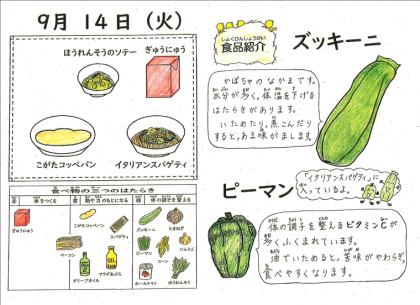 9月 14日(火)
ほうれんそうのソテー
ぎゅうにゅう
こがたコッペパン
イタリアンスパゲティ
食べ物の三つのはたらき
赤 体をつくる
黄 熱や力のもとになる
緑 体の調子を整える
ぎゅうにゅう
ベーコン
こがたコッペパン
スパゲティ
オリーブオイル
サラダあぶら
ズッキーニ
たまねぎ
ピーマン
コーン
にんじん
ホールトマト
ほうれんそう
しょくひんしょうかい
食品紹介
ズッキーニ
かぼちゃのなかまです。
水分が多く、体温を下げる
はたらきがあります。
いためたり、煮こんだり
すると、あま味がまします。
ピーマン
「イタリアンスパゲティ」に
入っているよ。
体の調子を整えるビタミンCが
多くふくまれています。
油でいためると、苦味がやわらぎ、
食べやすくなります。